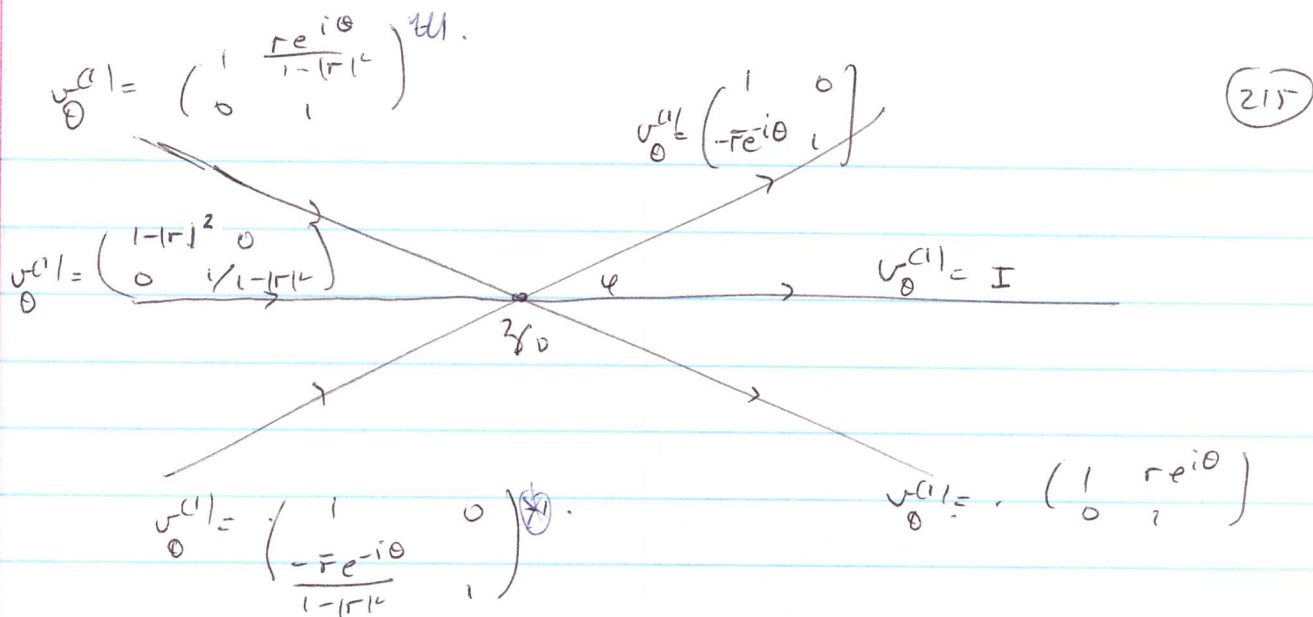 v_θ^{(1)} = ( 1 re^{iθ}/1-|r|² ; 0 1 )
v_θ^{(1)} = ( 1 0 ; -r̄e^{-iθ} 1 )
215
v_θ^{(1)} = ( 1-|r|² 0 ; 0 1/1-|r|² )
φ
v_θ^{(1)} = I
z_0
v_θ^{(1)} = ( 1 0 ; -r̄e^{-iθ}/1-|r|² 1 )
v_θ^{(1)} = ( 1 re^{iθ} ; 0 1 )